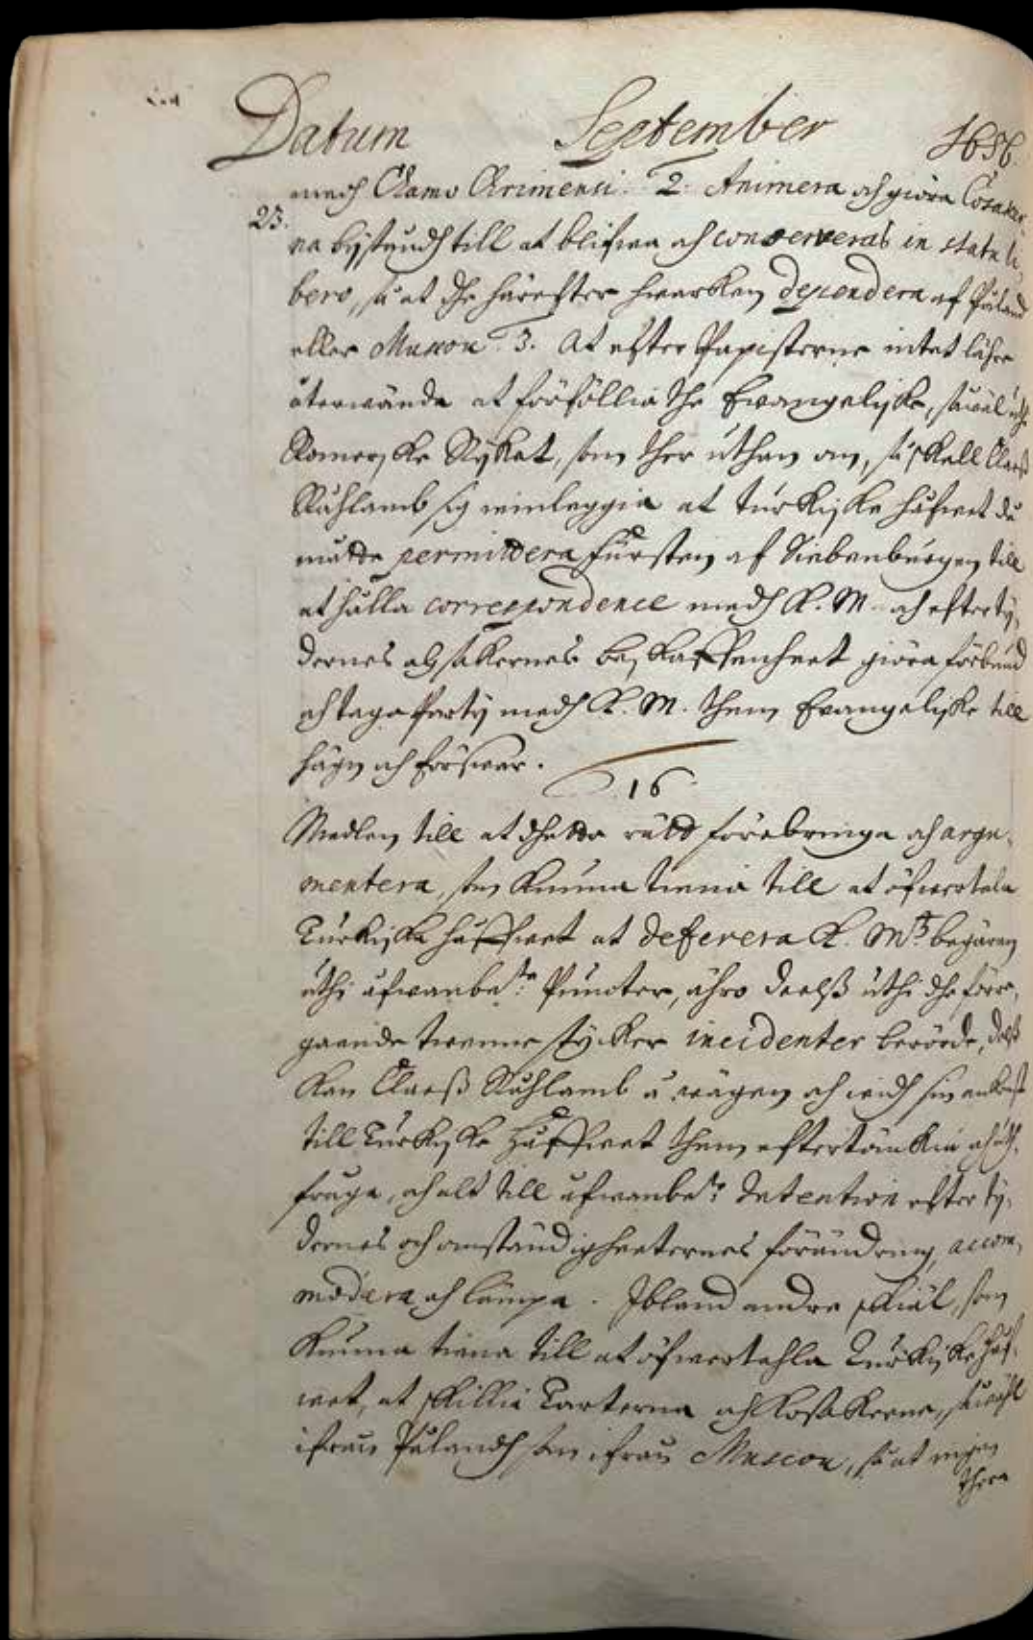 Datum September 1656.
medh Chamo Crimensi. 2. Animera och giöra Cosaker-
23.
na bijståndh till at blifwa och conserveras in statu li-
bero, så at dhe härefter hwarken dependera af Påland
eller Muscou. 3. At efter Papisterne intet lähre
återwända at förföllia the Ewangelijske, såwäl uthj
Romerske Rijket, som ther uthan om, så skall Claes
Råhlamb sig winleggia at Turkijske håfwet då
måtte permittera Fursten af Siebenbürgen till
at hålla correspondence medh K. M. och efter tij-
dernes och sakernes beskaffenheet giöra förbund
och taga Partij medh K. M. them Evangeliske till
hägn och förswar.
16
Medlen till at dhetta rätt förebringa och argu-
mentera, som kunna tiena till at öfwertala
Turkiska håffwet at deferera K. Mtz begären
uthi ofwanbe:te Puncter, ähro deelss uthi dhe förre-
gaaende trenne stycker incidenter berörde, deelss
kan Claess Råhlamb å wägen och widh sin ankomst
till Turkijske Håffwet them eftertänkia och uth-
fråga, och alt till ofwanbe:te Intention efter tij-
dernes och omständigheeternes förändring, accom-
modera och lämpa. Ibland andra skiäl, som
kunna tiena till at öfwertahla Turkijske håf-
wet, at skillia Tarterna och Kosakerne, såwähl
ifrån Pålandh som ifrån Muscou, så at ingen
thera